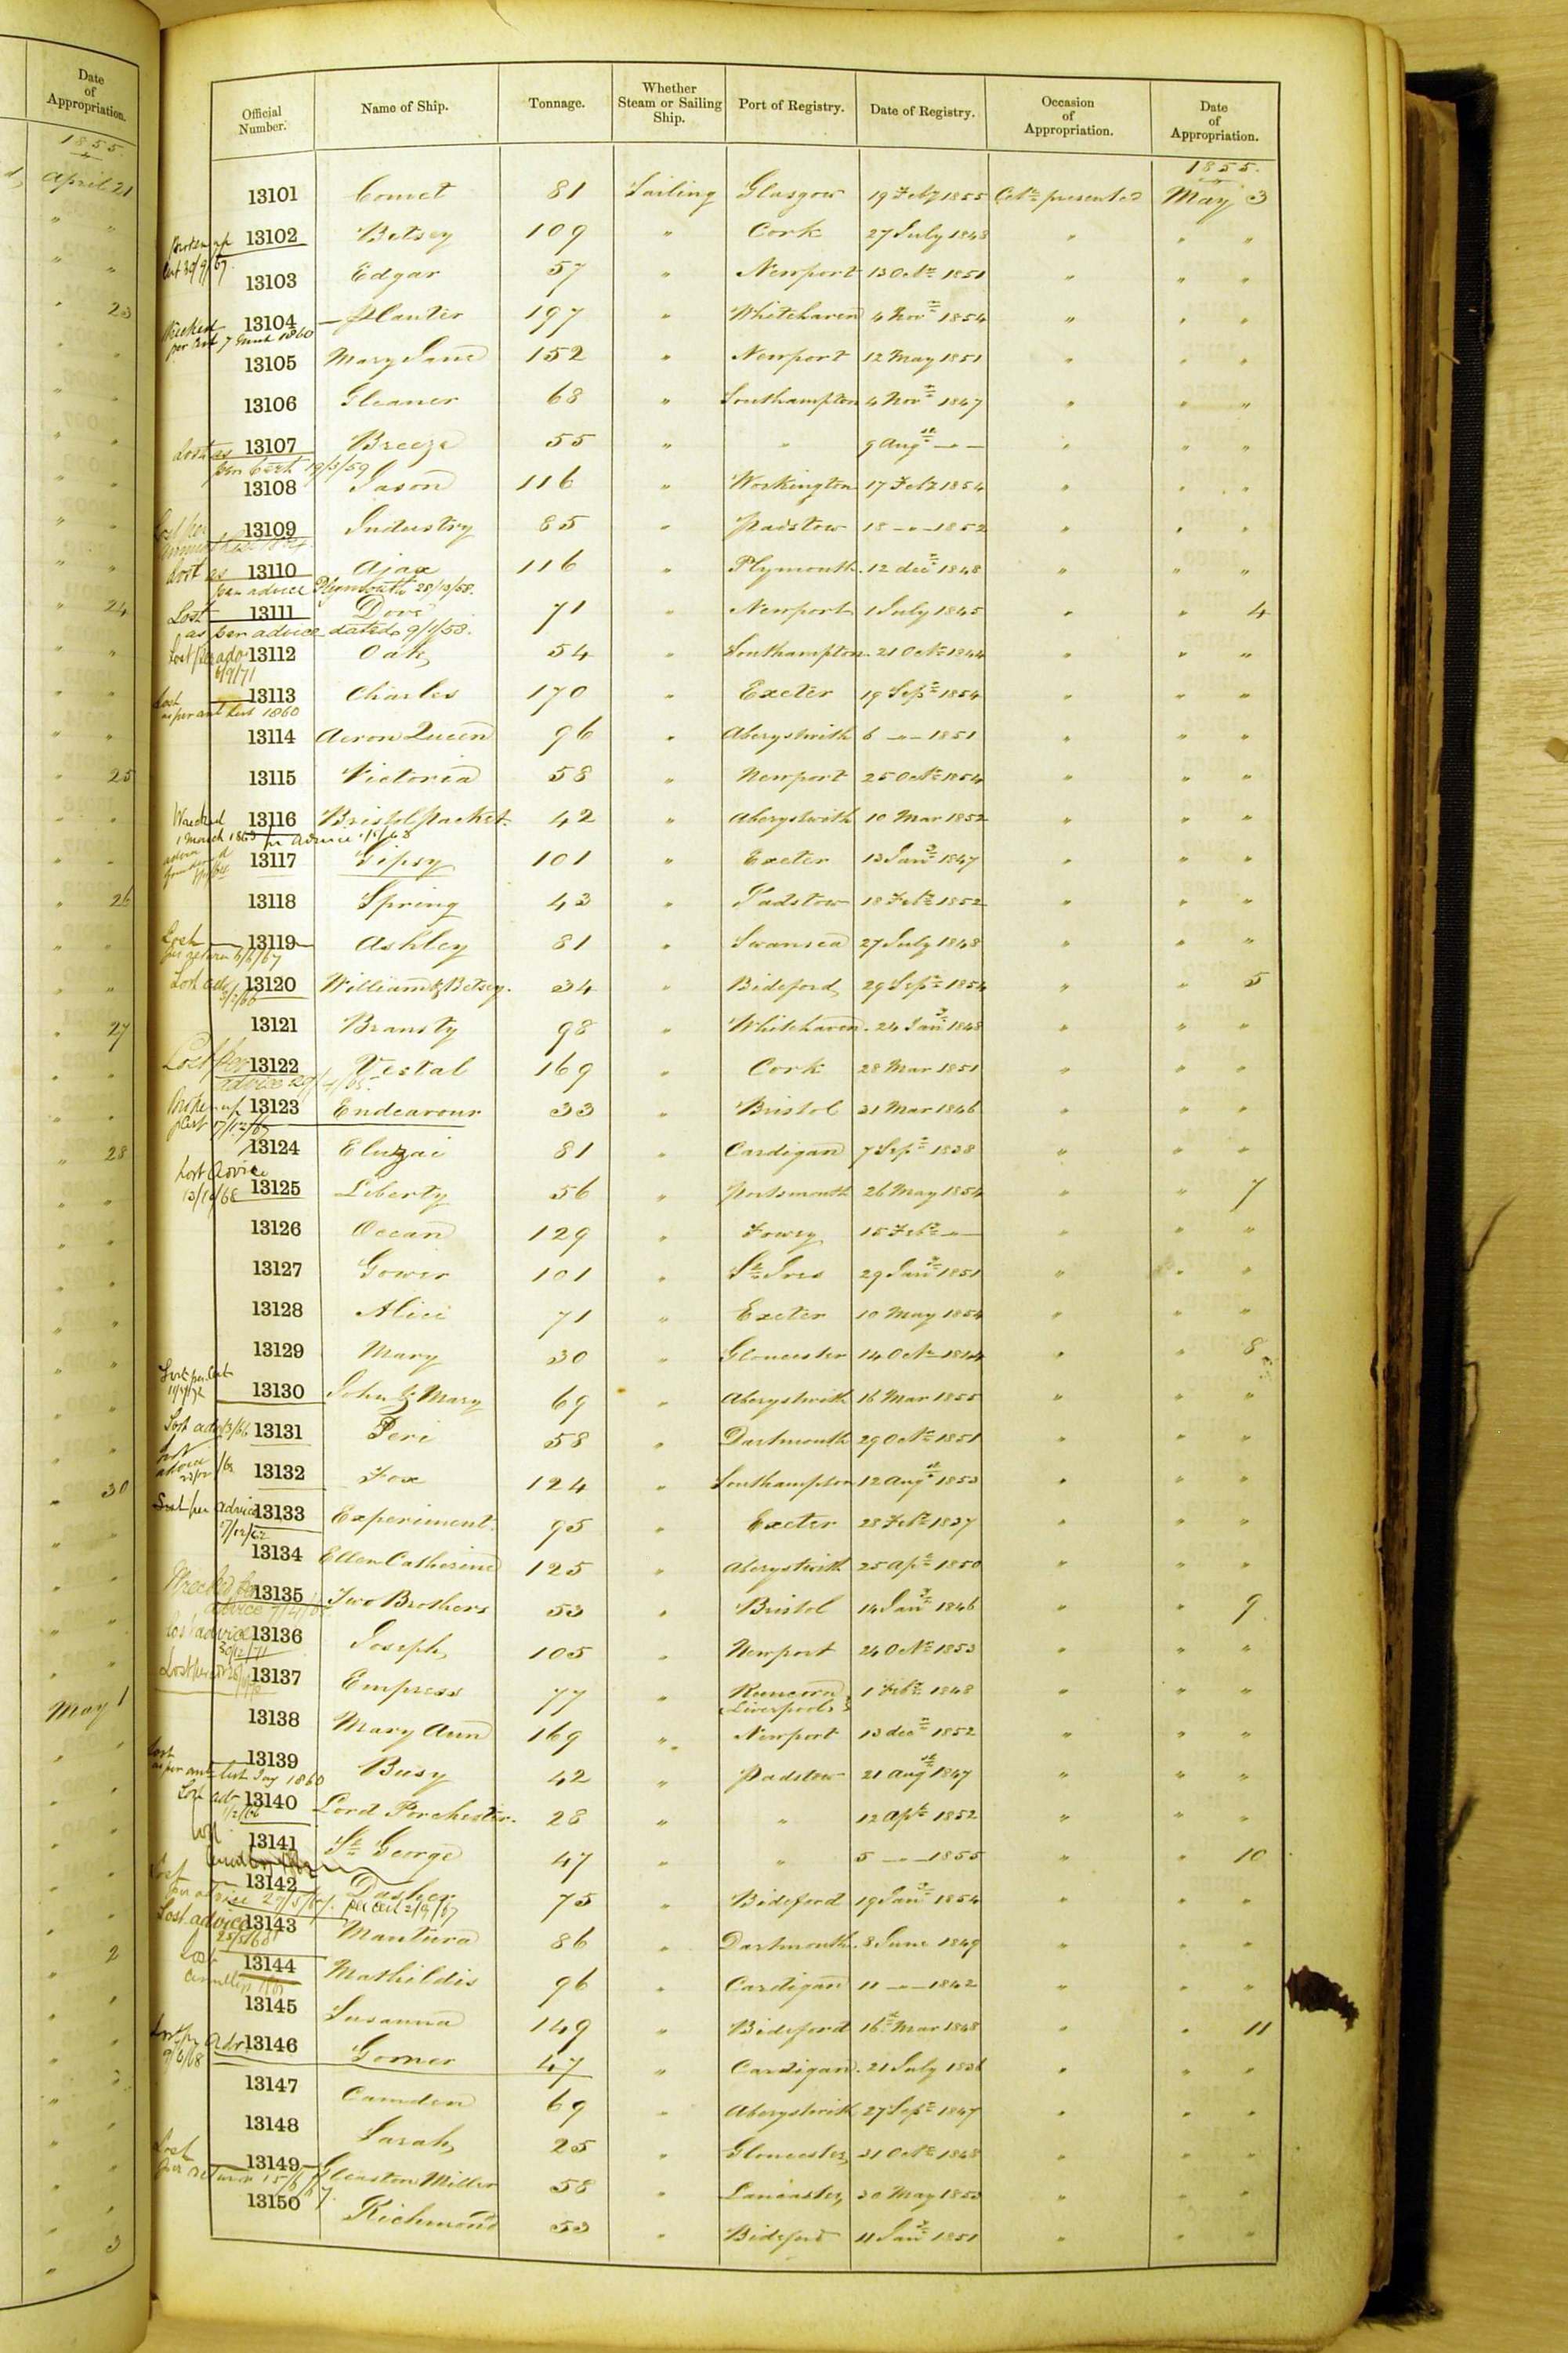 Date of Appropriation.
1855.
April 21
" "
" "
" 23
" 24
" 25
" 26
" 27
" 28
" 30
May 1
" 2
" 3
Official Number. Name of Ship. Tonnage. Whether Steam or Sailing Ship. Port of Registry. Date of Registry. Occasion of Appropriation. Date of Appropriation.
1855.
13101 Comet 81 Sailing Glasgow 19 Feby 1855 Cete presented May 3
Broken up
13102 Betsey 109 " Cork 27 July 1848 " " "
Cert 30/9/67
13103 Edgar 57 " Newport 13 Octr 1851 " " "
Wrecked
13104 Planter 197 " Whitehaven 4 Novr 1854 " " "
per
13105 Mary Jane 152 " Newport 12 May 1851 " " "
13106 Gleaner 68 " Southampton 4 Novr 1847 " " "
Lost as
13107 Breeze 55 " " 9 Augst — " — " " "
per Certe 19/3/59
13108 Jason 116 " Workington 17 Feby 1854 " " "
13109 Industry 85 " Padstow 18 — " — 1852 " " "
Lost as
13110 Ajax 116 " Plymouth 12 decr 1848 " " "
per advice Plymouth 28/12/58.
Lost
13111 Dove 71 " Newport 1 July 1845 " " 4
as per advice dated 9/1/58.
Lost per adv
13112 Oak 54 " Southampton 21 Octr 1844 " " "
6/9/71
Lost
13113 Charles 170 " Exeter 19 Sepr 1854 " " "
as per ant list 1860
13114 Aeron Queen 96 " Aberystwith 6 — " — 1851 " " "
13115 Victoria 58 " Newport 25 Octr 1854 " " "
Wrecked
13116 Bristol Packet 42 " Aberystwith 10 Mar 1852 " " "
1 March 1863 per advice
13117 Gipsy 101 " Exeter 13 Janr 1847 " " "
13118 Spring 43 " Padstow 18 Febr 1852 " " "
Lost
13119 Ashley 81 " Swansea 27 July 1848 " " "
per return 5/6/67
Lost adv
13120 William & Betsey 34 " Bideford 29 Sepr 1854 " " 5
3/2/66
13121 Bransty 98 " Whitehaven 24 Jany 1848 " " "
Lost per
13122 Vestal 169 " Cork 28 Mar 1851 " " "
advice
Broken up
13123 Endeavour 33 " Bristol 31 Mar 1846 " " "
Cert 17/12/67
13124 Eluzai 81 " Cardigan 7 Sepr 1838 " " "
Lost Advice
13125 Liberty 56 " Portsmouth 26 May 1854 " " 7
13126 Ocean 129 " Fowey 15 Febr — " — " " "
13127 Gower 101 " St Ives 29 Jany 1851 " " "
13128 Alice 71 " Exeter 10 May 1854 " " "
13129 Mary 30 " Gloucester 14 Octr 1844 " " 8
Lost per Cert
13130 John & Mary 69 " Aberystwith 16 Mar 1855 " " "
Lost adv
13131 Peri 58 " Dartmouth 29 Octr 1851 " " "
Lost advice
13132 Fox 124 " Southampton 12 Augst 1853 " " "
Lost per advice
13133 Experiment 95 " Exeter 28 Febr 1837 " " "
17/12/62
13134 Ellen Catherine 125 " Aberystwith 25 Apl 1850 " " "
Wrecked per
13135 Two Brothers 53 " Bristol 14 Jany 1846 " " 9
advice
Lost advice
13136 Joseph 105 " Newport 24 Octr 1853 " " "
30/12/71
13137 Empress 77 " Runcorn, Liverpool 1 Febr 1848 " " "
13138 Mary Ann 169 " Newport 13 decr 1852 " " "
Lost
13139 Busy 42 " Padstow 21 Augst 1847 " " "
as per ant list 1860
Lost adv
13140 Lord Porchester 28 " " 12 Apl 1852 " " "
1/2/66
Lost
13141 St George 47 " " 5 — " — 1855 " " 10
Lost
13142 Dasher 75 " Bideford 19 Jany 1854 " " "
per advice 29/5/67. per cert 2/9/67
Lost advice
13143 Mantura 86 " Dartmouth 8 June 1849 " " "
Lost
13144 Mathildis 96 " Cardigan 11 — " — 1842 " " "
13145 Susanna 149 " Bideford 16 Mar 1848 " " 11
Lost per Adv
13146 Gomer 47 " Cardigan 21 July 1836 " " "
9/6/68
13147 Camden 69 " Aberystwith 27 Sepr 1847 " " "
13148 Sarah 25 " Gloucester 31 Octr 1848 " " "
Lost
13149 Gleaston Miller 58 " Lancaster 30 May 1853 " " "
per return 15/6/67
13150 Richmond 53 " Bideford 11 Jany 1851 " " "